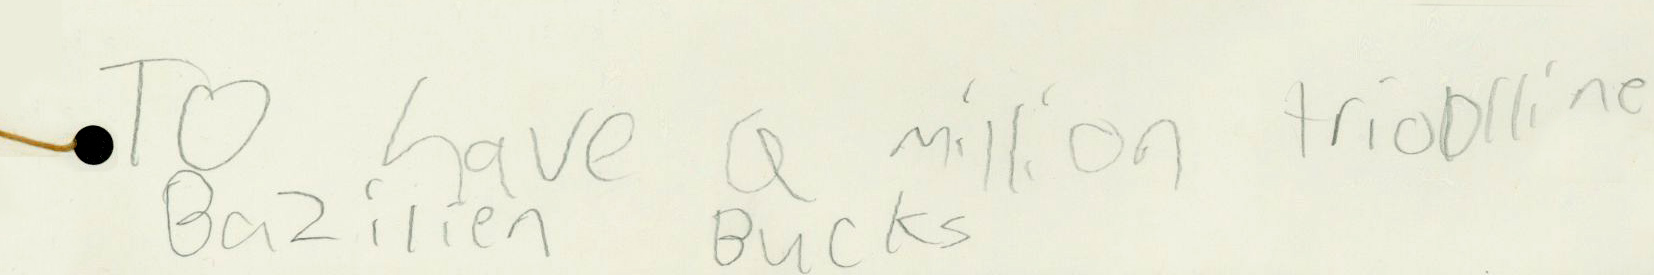 TO have a million trioDlline
Bazilien Bucks